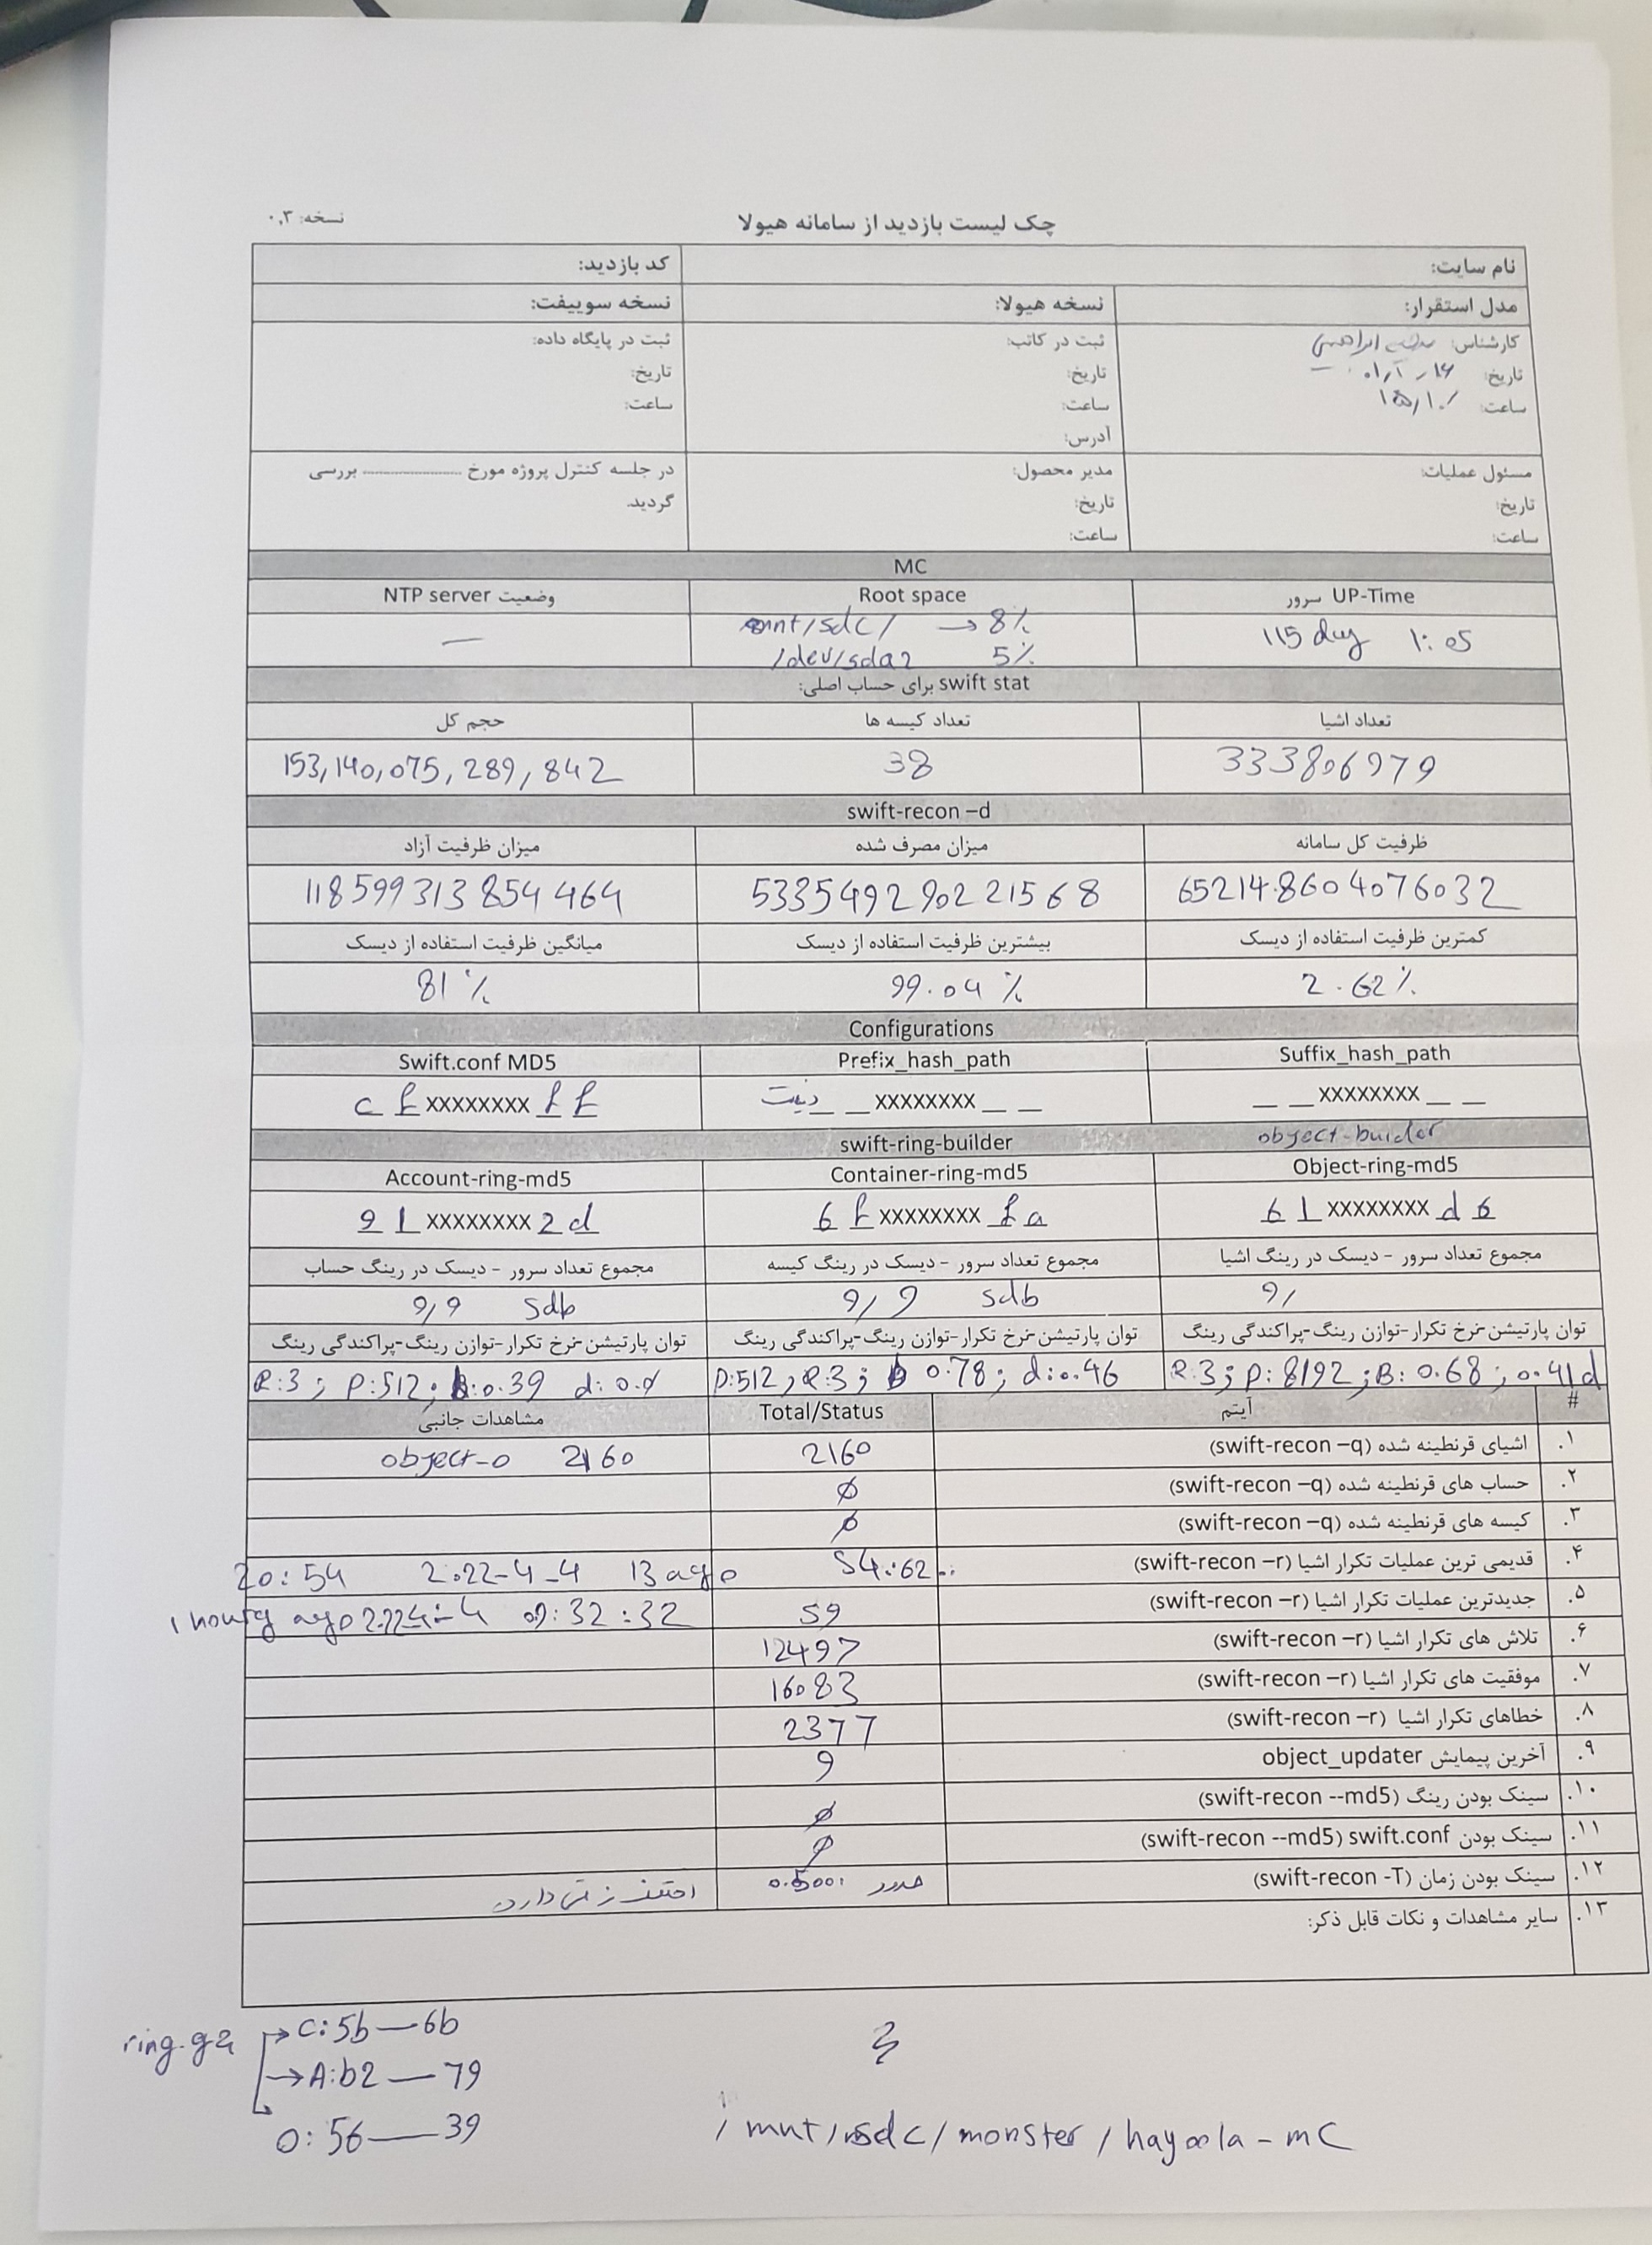 چک لیست بازدید از سامانه هیولا
نسخه: ۰,۳
نام سایت:
کد بازدید:
مدل استقرار:
نسخه هیولا:
نسخه سوییفت:
کارشناس: ابراهیمی
تاریخ:
ساعت: ۱۵/۱۰
ثبت در کاتب:
تاریخ:
ساعت:
آدرس:
ثبت در پایگاه داده:
تاریخ:
ساعت:
مسئول عملیات:
تاریخ:
ساعت:
مدیر محصول:
تاریخ:
ساعت:
در جلسه کنترل پروژه مورخ ........................ بررسی
گردید.
MC
UP-Time سرور
Root space
وضعیت NTP server
115 day 1:05
mnt/sdc/ → 8%
/dev/sda2 5%
—
swift stat برای حساب اصلی:
تعداد اشیا
تعداد کیسه ها
حجم کل
333806979
38
153,140,075,289,842
swift-recon –d
ظرفیت کل سامانه
میزان مصرف شده
میزان ظرفیت آزاد
652148604076032
533549290221568
118599313854464
کمترین ظرفیت استفاده از دیسک
بیشترین ظرفیت استفاده از دیسک
میانگین ظرفیت استفاده از دیسک
2.62%
99.04 %
81 %
Configurations
Suffix_hash_path
Prefix_hash_path
Swift.conf MD5
_ _ xxxxxxxx _ _
_ _ xxxxxxxx _ _
c f xxxxxxxx f f
swift-ring-builder
object-buider
Object-ring-md5
Container-ring-md5
Account-ring-md5
6 1 xxxxxxxx d 6
6 f xxxxxxxx f a
9 1 xxxxxxxx 2 d
مجموع تعداد سرور – دیسک در رینگ اشیا
مجموع تعداد سرور – دیسک در رینگ کیسه
مجموع تعداد سرور – دیسک در رینگ حساب
9/
9/9 sdb
9/9 sdb
توان پارتیشن-نرخ تکرار-توازن رینگ-پراکندگی رینگ
توان پارتیشن-نرخ تکرار-توازن رینگ-پراکندگی رینگ
توان پارتیشن-نرخ تکرار-توازن رینگ-پراکندگی رینگ
R:3; P: 8192; B: 0.68; 0.41d
P:512, R:3; b 0.78; d:0.46
R:3; P:512; b:0.39 d:0.0
# آیتم Total/Status مشاهدات جانبی
۱. اشیای قرنطینه شده (swift-recon –q) 2160 object-o 2160
۲. حساب های قرنطینه شده (swift-recon –q) ∅
۳. کیسه های قرنطینه شده (swift-recon –q) ∅
۴. قدیمی ترین عملیات تکرار اشیا (swift-recon –r) 20:54 2022-4-4 13 ago
۵. جدیدترین عملیات تکرار اشیا (swift-recon –r) 59 09:32:32
۶. تلاش های تکرار اشیا (swift-recon –r) 12497
۷. موفقیت های تکرار اشیا (swift-recon –r) 16083
۸. خطاهای تکرار اشیا (swift-recon –r) 2377
۹. آخرین پیمایش object_updater 9
۱۰. سینک بودن رینگ (swift-recon --md5) ∅
۱۱. سینک بودن swift.conf (swift-recon --md5) ∅
۱۲. سینک بودن زمان (swift-recon -T) حدود
۱۳. سایر مشاهدات و نکات قابل ذکر:
ring.gz → C:5b—6b
→ A:b2—79
O:56—39
/mnt/sdc/monster/hayoola-mC